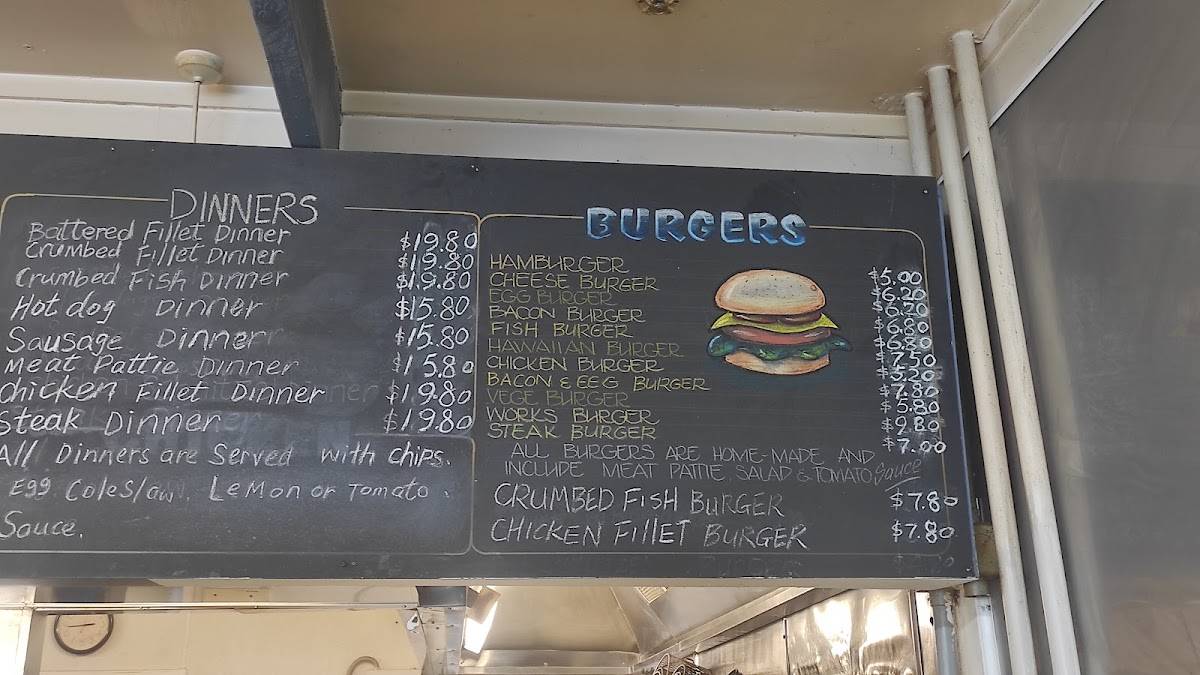 DINNERS
Battered Fillet Dinner $19.80
Crumbed Fillet Dinner $19.80
Crumbed Fish Dinner $19.80
Hot dog Dinner $15.80
Sausage Dinner $15.80
Meat Pattie Dinner $15.80
Chicken Fillet Dinner $19.80
Steak Dinner $19.80
All Dinners are Served with chips.
Egg. Coleslaw. Lemon or Tomato.
Sauce.
BURGERS
HAMBURGER $5.00
CHEESE BURGER $6.20
EGG BURGER
BACON BURGER $6.80
FISH BURGER $6.80
HAWAIIAN BURGER $7.50
CHICKEN BURGER $5.20
BACON & EGG BURGER $7.80
VEGE BURGER $5.80
WORKS BURGER $9.80
STEAK BURGER $7.00
ALL BURGERS ARE HOME-MADE AND
INCLUDE MEAT PATTIE, SALAD & TOMATO Sauce
CRUMBED FISH BURGER $7.80
CHICKEN FILLET BURGER $7.80